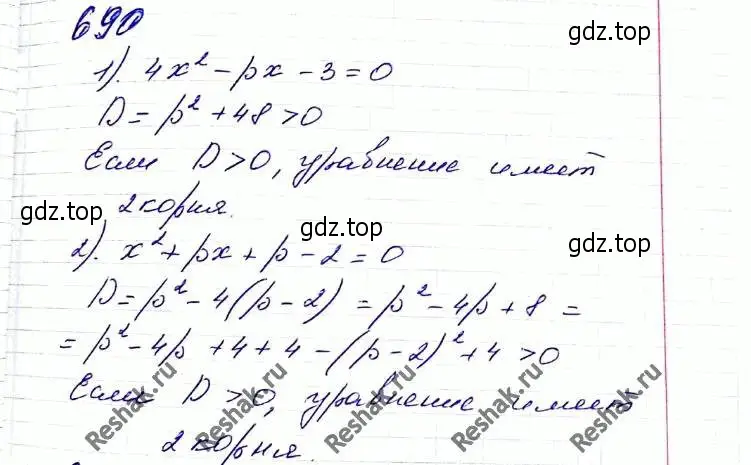 690
gdz.top
1). 4x² - px - 3 = 0
D = p² + 48 > 0
gdz.top
Если D > 0, уравнение имеет
2 корня.
gdz.top
gdz.top
gdz.top
2). x² + px + p - 2 = 0
D = p² - 4(p - 2) = p² - 4p + 8 =
= p² - 4p + 4 + 4 - (p - 2)² + 4 > 0
Если D > 0, уравнение имеет
2 корня.
Reshak.ru
Reshak.ru
Reshak.ru
Reshak.ru